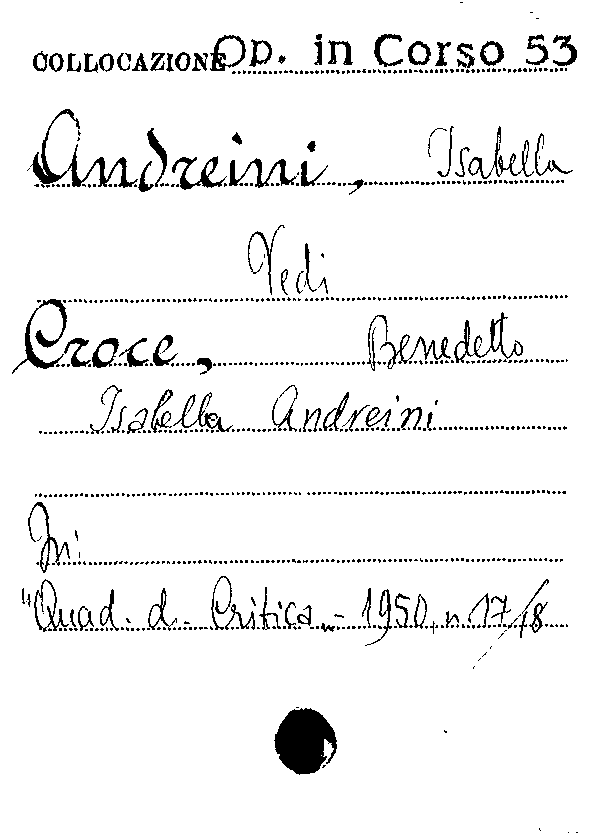 COLLOCAZIONE Op. in Corso 53
Andreini, Isabella
Vedi
Croce, Benedetto
Isabella Andreini
In:
"Quad. d. Critica„ - 1950, n. 17/18